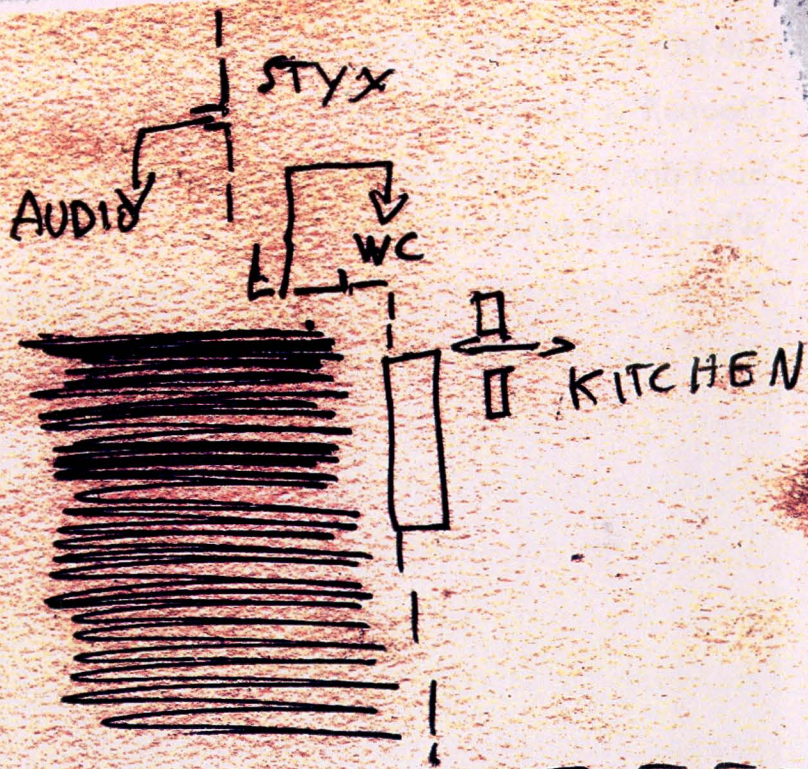 STYX
AUDIO
WC
KITCHEN